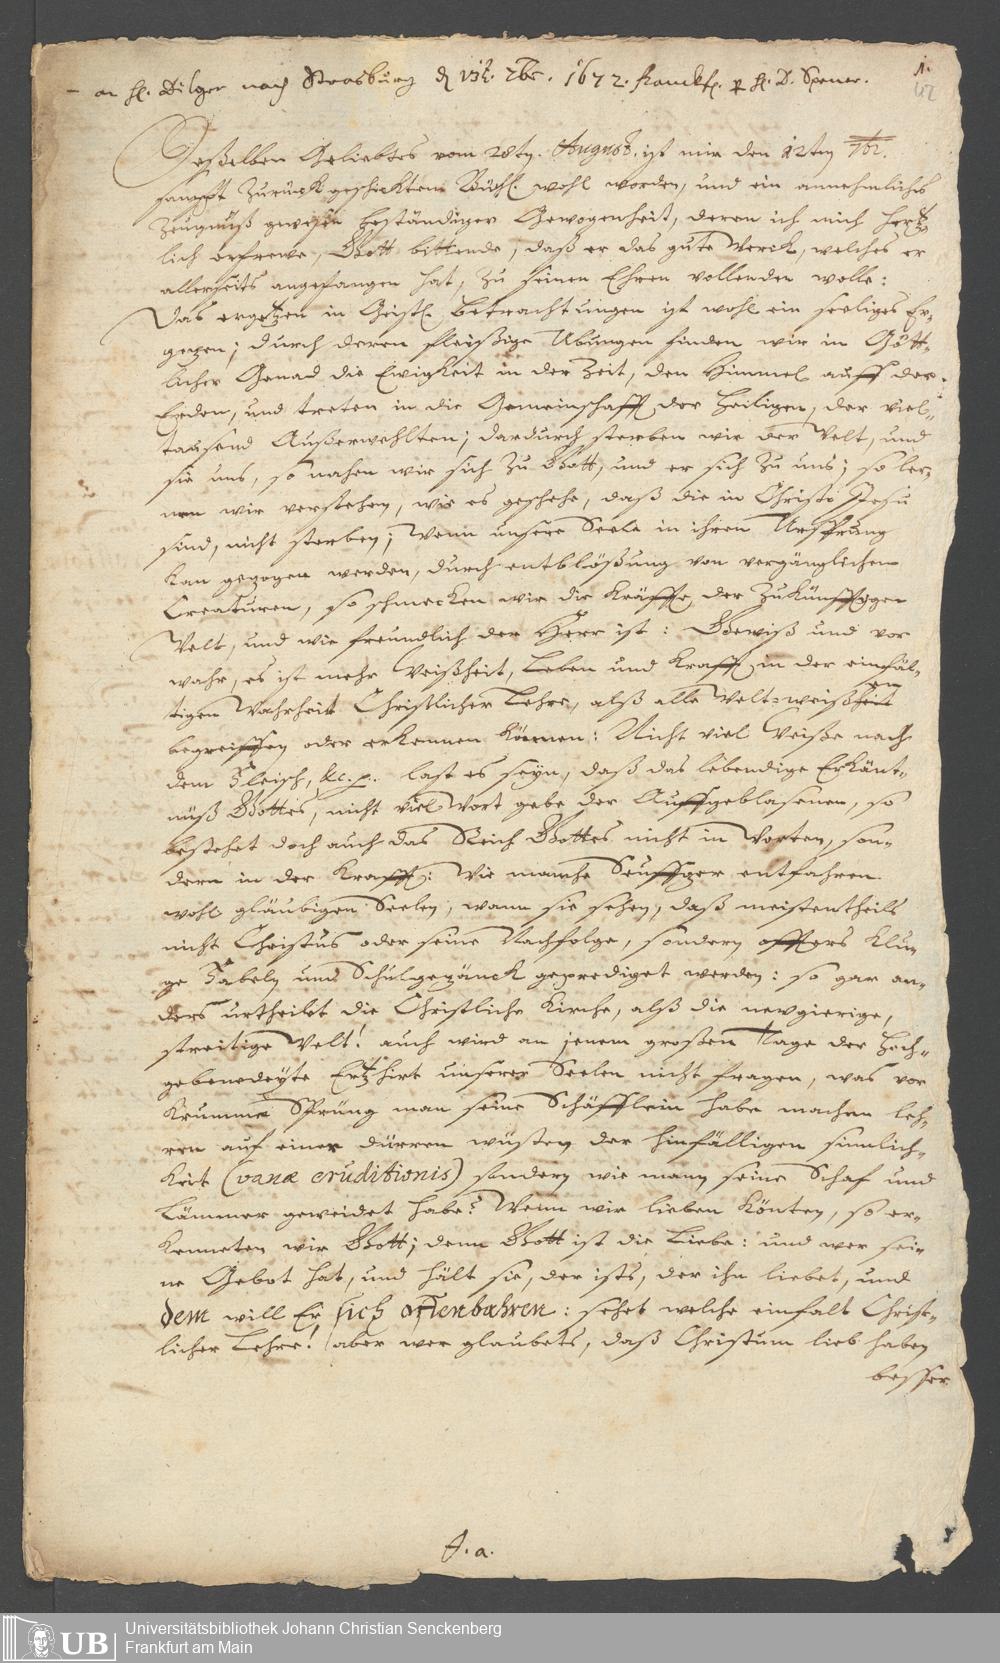 an H. Dilger nach Strasburg d 13t. 7br. 1672. franckf. p H. D. Spener.
1.
42
Deßelben Geliebtes vom 28ten. August. ist mir den 12ten 7br.
sampt zurückgeschicktem Büchl. wohl worden, und ein annehmliches
Zeugnuß gewesen beständiger Gewogenheit, deren ich mich hertz-
lich erfrewe, Gott bittende, daß er das gute Werck, welches er
allerseits angefangen hat, zu seinen Ehren vollenden wolle:
Das ergetzen in Geistl. Betrachtungen ist wohl ein seeliges Er-
getzen; durch deren fleißige Übungen finden wir in Gött-
licher Genad die Ewigkeit in der Zeit, den Himmel auff der
Erden, und treten in die Gemeinschafft der Heiligen, der viel-
tausend Außerwehlten; dardurch sterben wir der Welt, und
sie uns, so nahen wir sich zu Gott, und er sich zu uns; so ler-
nen wir verstehen, wie es geschehe, daß die in Christo Jesu
sind, nicht sterben; Wenn unsere Seele in ihren Ursprung
kan gezogen werden, durch entblößung von vergänglichen
Creaturen, so schmecken wir die Kräffte der zukünfftigen
Welt, und wie freundlich der Herr ist: Gewiß und vor
wahr, es ist mehr Weißheit, Leben und Krafft in der einfäl-
tigen Wahrheit Christlicher Lehre, alß alle Welt-weißheit
en
begreiffen oder erkennen können: Nicht viel Weise nach
dem Fleisch, &c. p. last es seyn, daß das lebendige Erkänt-
nüß Gottes, nicht viel Wort gebe der Auffgeblasenen, so
bestehet doch auch das Reich Gottes nicht in Worten, son-
dern in der Krafft: Wie manche Seufftzer entfahren
wohl gläubigen Seelen, wann sie sehen, daß meistentheils
nicht Christus oder seine Nachfolge, sondern öffters klu-
ge Fabeln und Schulgezänck geprediget werden: so gar an-
ders urtheilet die Christliche Kirche, alß die newgierige,
streitige Welt! auch wird an jenem großen Tage der Hoch-
gebenedeyte Ertzhirt unserer Seelen nicht fragen, was vor
krumme Sprüng man seine Schäfflein habe machen leh-
ren auf einer dürren wüsten der hinfälligen sinnlich-
keit (vanæ eruditionis) sondern wie man seine Schaf und
Lämmer geweidet habe? Wenn wir lieben könten, so er-
kenneten wir Gott; denn Gott ist die Liebe: und wer sei-
ne Gebot hat, und hält sie, der ists, der ihn liebet, und
dem will Er sich offenbahren: sehet welche einfalt Christ-
licher Lehre! aber wer glaubets, daß Christum lieb haben
besser
f. a.
Universitätsbibliothek Johann Christian Senckenberg
Frankfurt am Main
UB